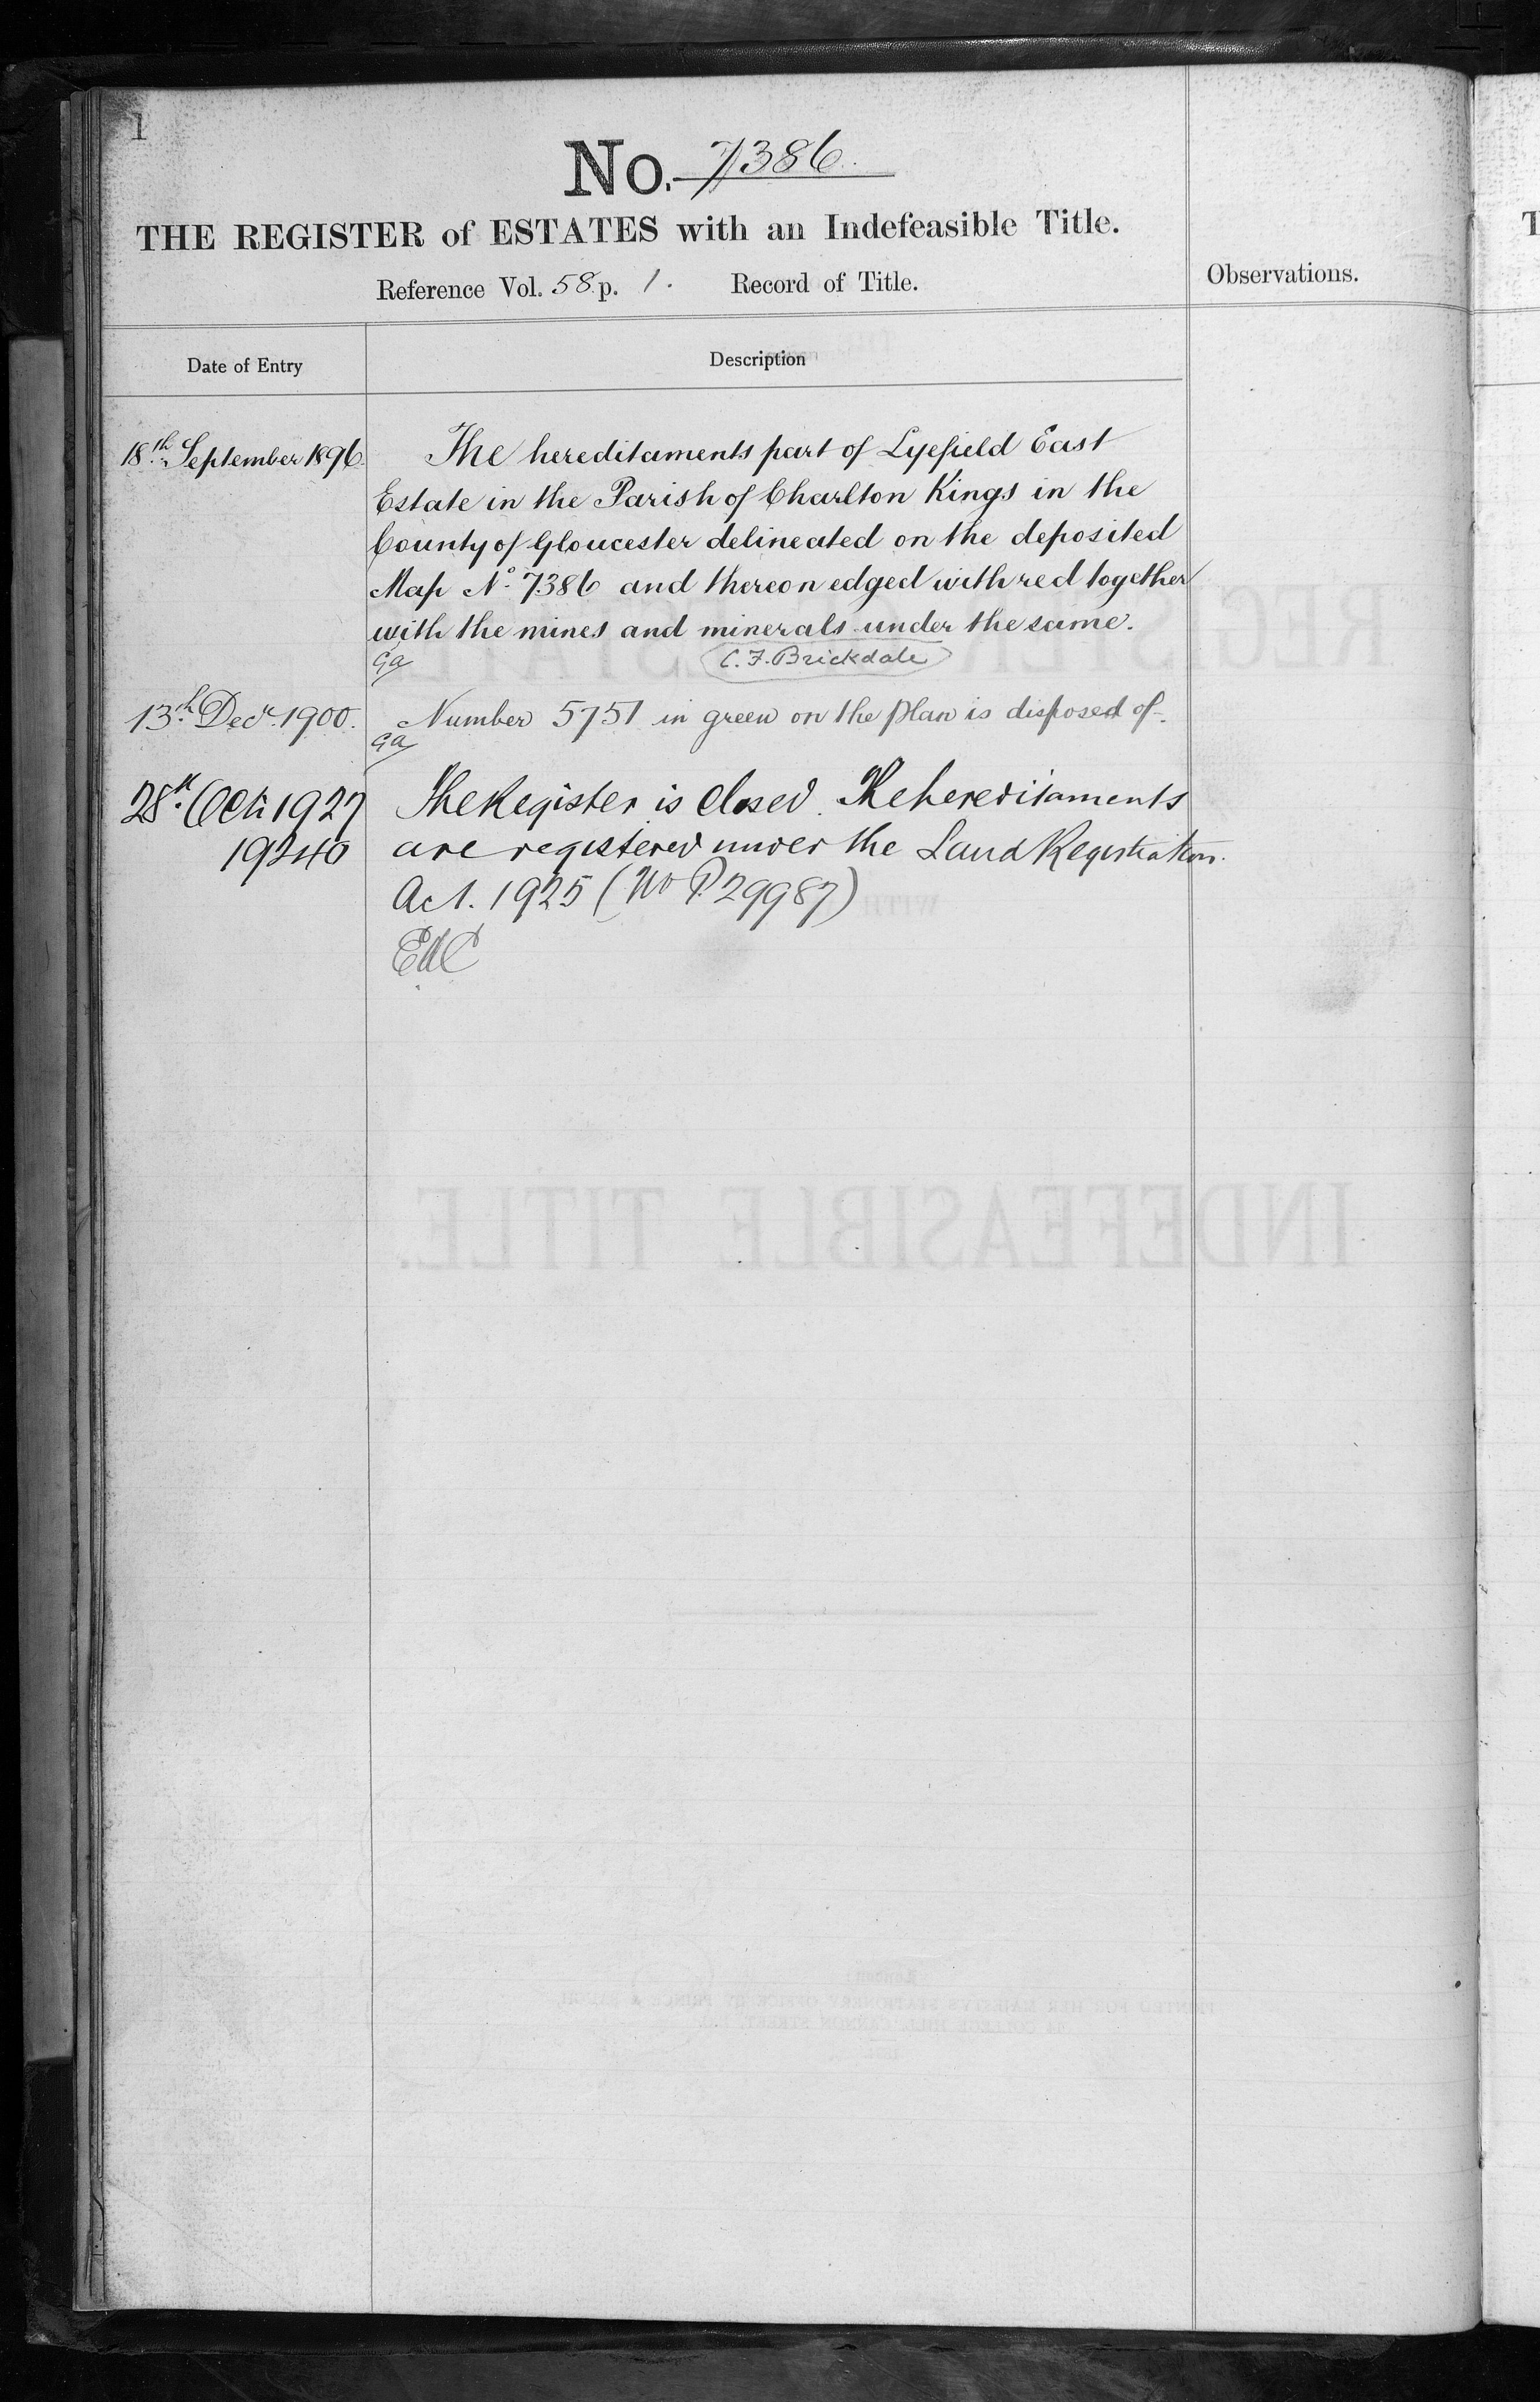 1
No. 7386.
THE REGISTER of ESTATES with an Indefeasible Title.
Reference Vol. 58 p. 1. Record of Title.
Observations.
Date of Entry
Description
18th September 1896.
The hereditaments part of Lyefield East
Estate in the Parish of Charlton Kings in the
County of Gloucester delineated on the deposited
Map No. 7386 and thereon edged with red together
with the mines and minerals under the same.
Ga
C. F. Brickdale
13th Decr. 1900.
Number 5751 in green on the plan is disposed of.
Ga
28th Oct: 1927
The Register is closed. The hereditaments
19240
are registered under the Land Registration
Act. 1925 (No P. 29987)
INDEFEASIBLE TITLE.
WITH